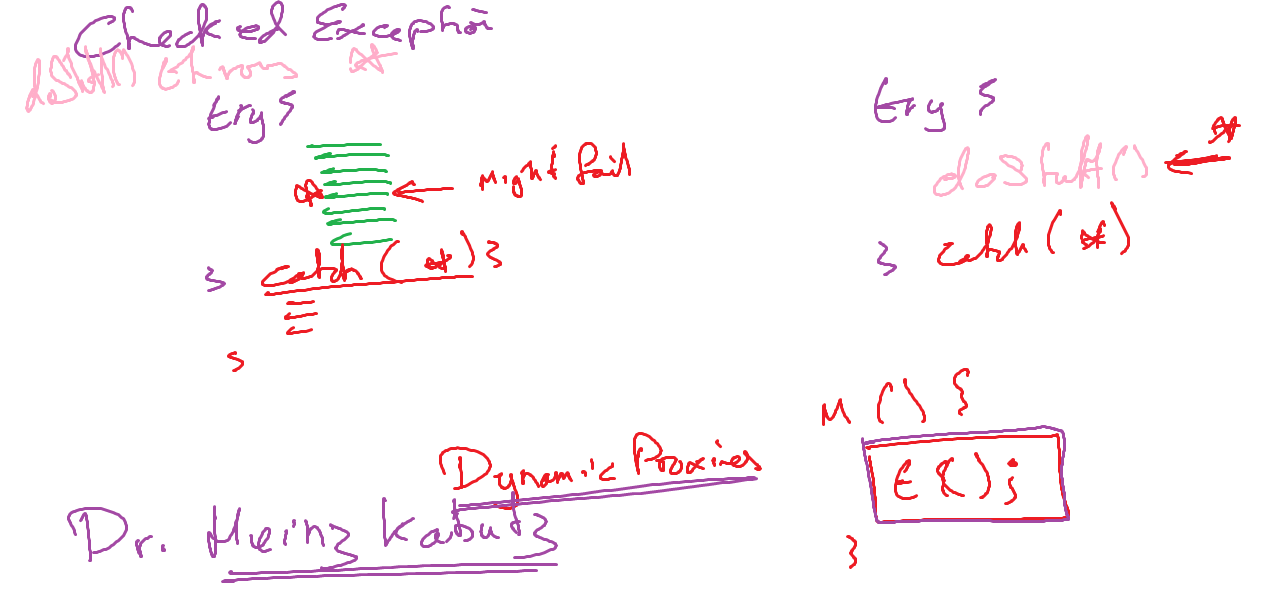 Checked Exception
doStuff() throws *
try {
* might fail
} catch (*) {
}
try {
doStuff() *
} catch (*)
M () {
E ();
}
Dynamic Proxies
Dr. Heinz Kabutz